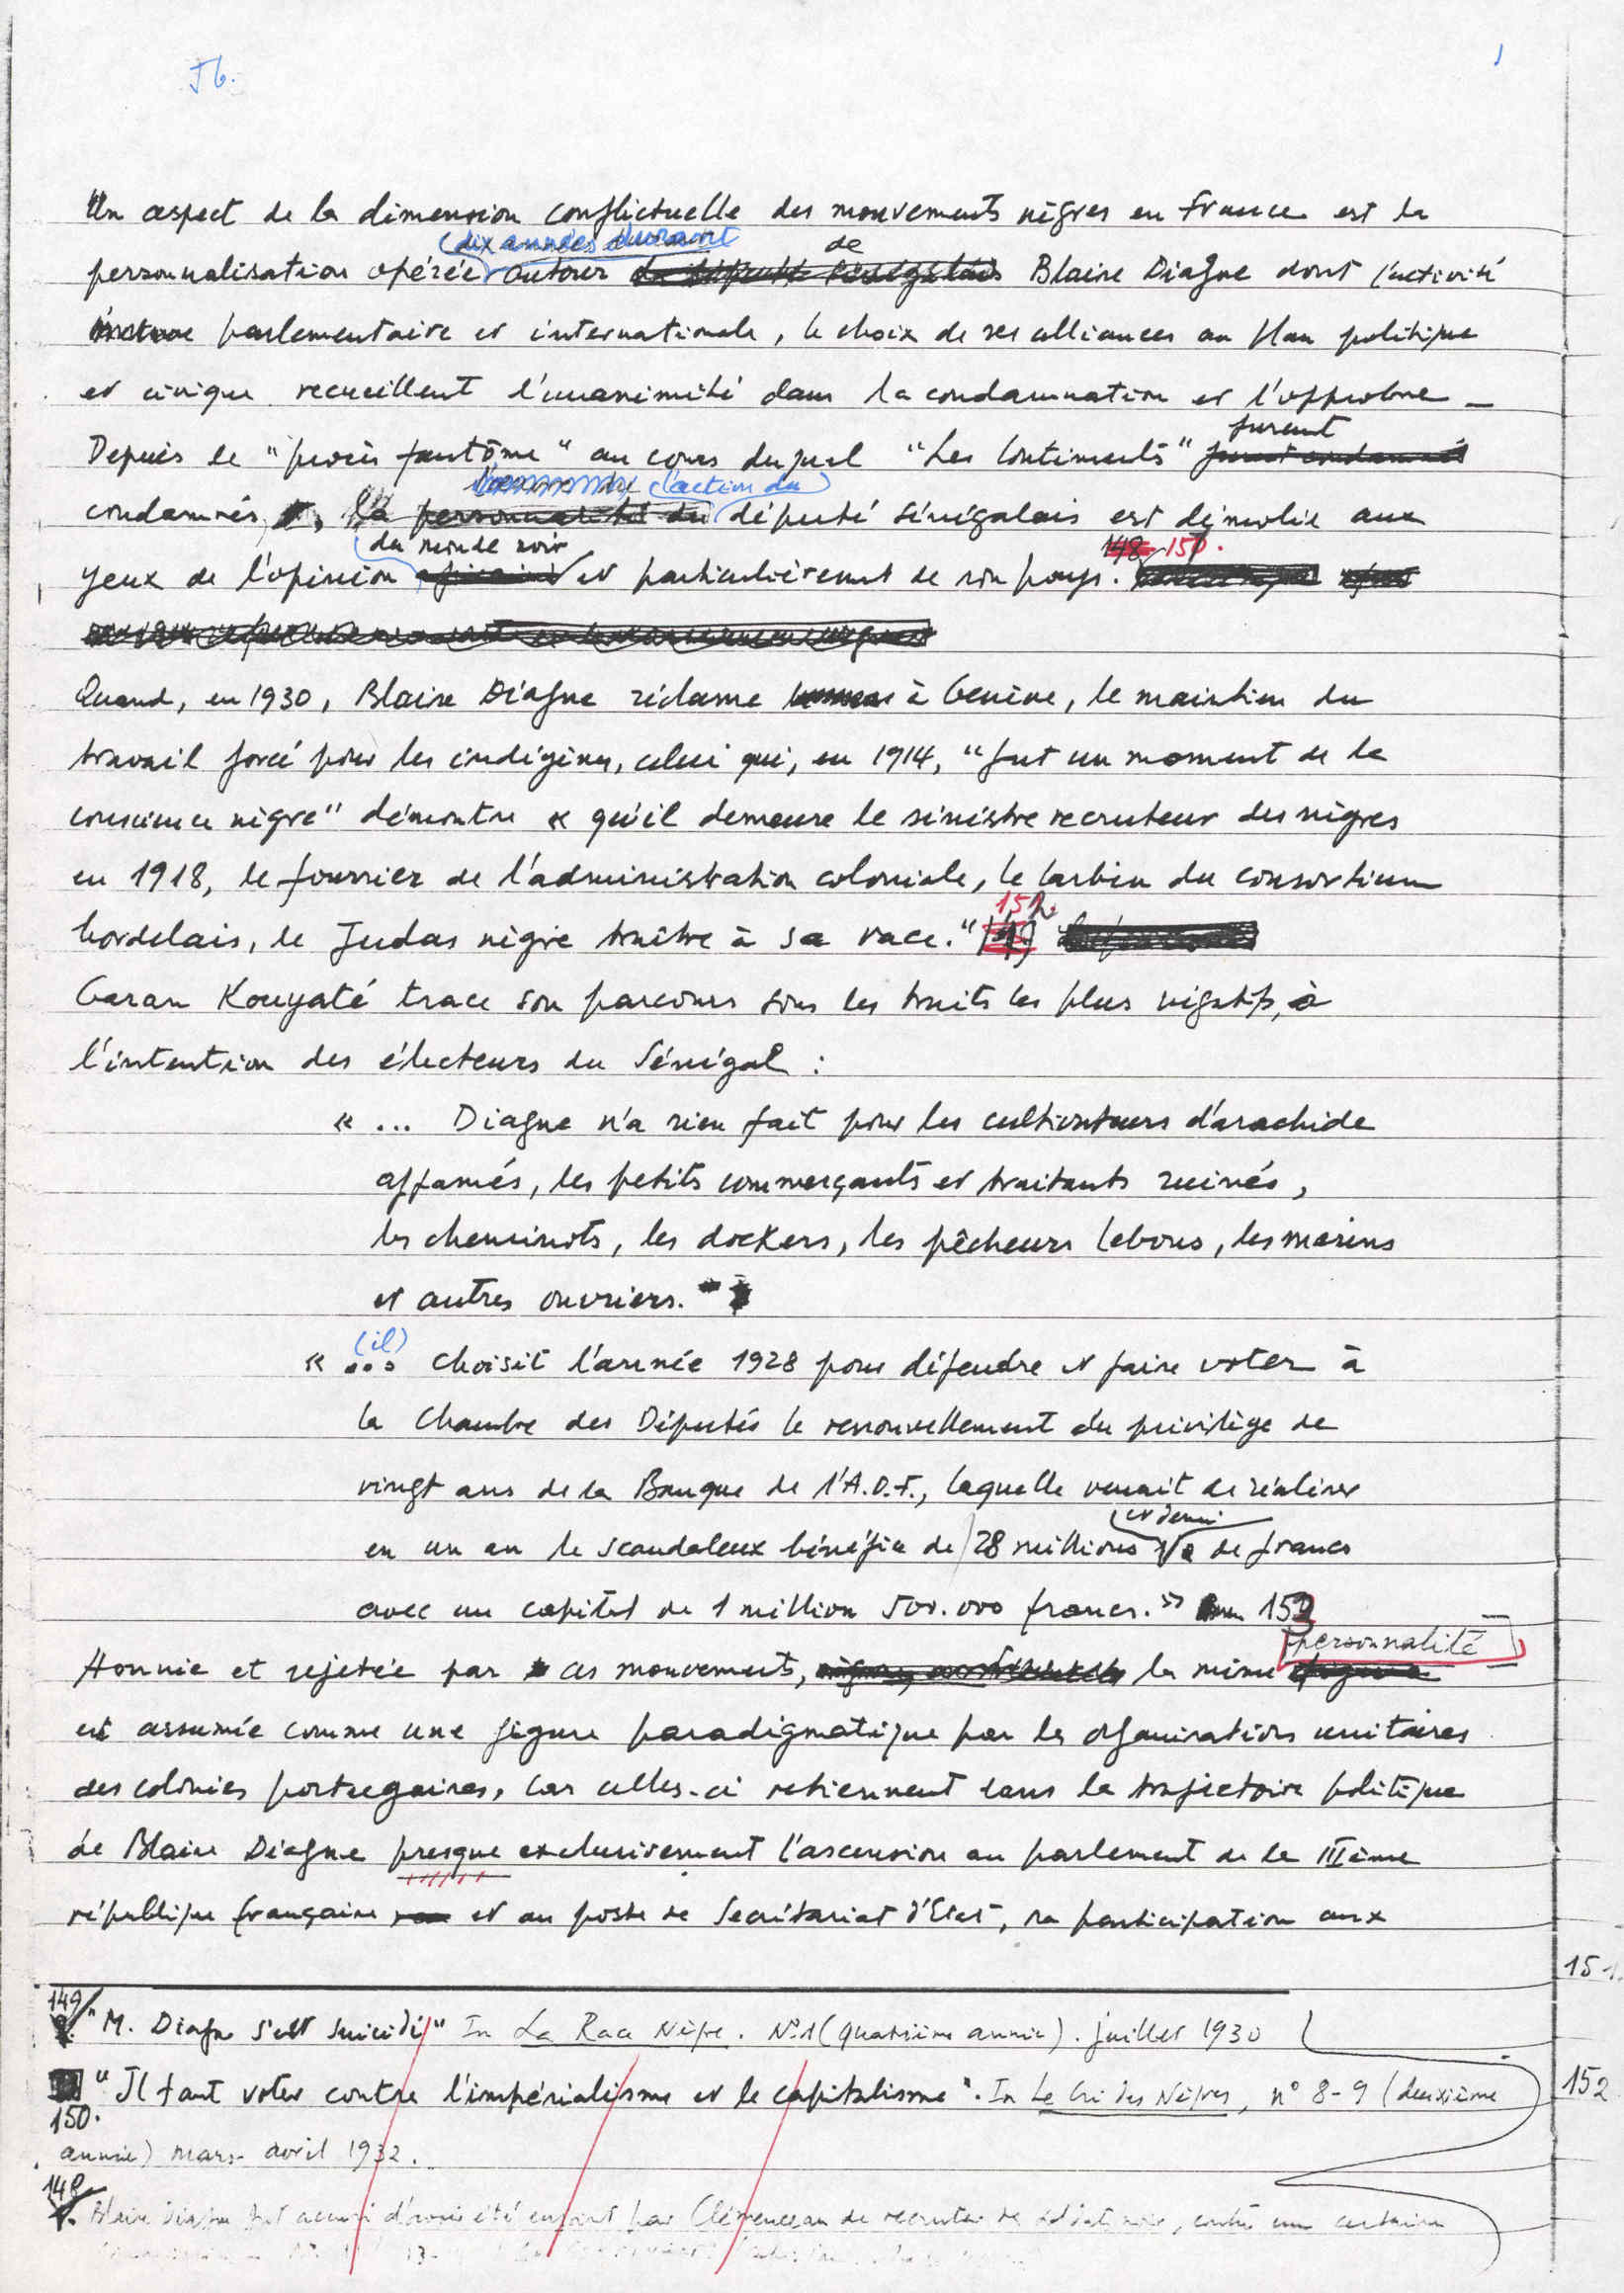 56.
1
Un aspect de la dimension conflictuelle des mouvements nègres en France est la
(dix années durant de
personnalisation opérée autour Blaise Diagne dont l'activité
parlementaire et internationale, le choix de ses alliances au plan politique
et civique recueillent l'unanimité dans la condamnation et l'opprobre_
furent
Depuis le "procès fantôme" au cours duquel "Les Continents"
l'action du
condamnés, la député sénégalais est démolie aux
du monde noir 148 150.
yeux de l'opinion et particulièrement de son pays.
Quand, en 1930, Blaise Diagne réclame à Genève, le maintien du
travail forcé pour les indigènes, celui qui, en 1914, "fut un moment de la
conscience nègre" démontre « qu'il demeure le sinistre recruteur des nègres
en 1918, le fourrier de l'administration coloniale, le larbin du consortium
151.
bordelais, le Judas nègre traître à sa race."
Garan Kouyaté trace son parcours sous les traits les plus négatifs, à
l'intention des électeurs du Sénégal :
« ... Diagne n'a rien fait pour les cultivateurs d'arachide
affamés, les petits commerçants et traitants ruinés,
les cheminots, les dockers, les pêcheurs lebous, les marins
et autres ouvriers.
(il)
« ... choisit l'année 1928 pour défendre et faire voter à
la Chambre des Députés le renouvellement du privilège de
vingt ans de la Banque de l'A.O.F., laquelle venait de réaliser
et demi
en un an le scandaleux bénéfice de 28 millions de francs
avec un capital de 1 million 500.000 francs." 152
personnalité
Honnie et rejetée par ces mouvements, la même
est assumée comme une figure paradigmatique par les organisations unitaires
des colonies portugaises, car celles-ci retiennent dans la trajectoire politique
de Blaise Diagne presque exclusivement l'ascension au parlement de la IIIème
république française et au poste de Secrétariat d'Etat, sa participation aux
151.
149
"M. Diagne s'est suicidé" In La Race Nègre. N°1 (quatrième année). juillet 1930
"Il faut voter contre l'impérialisme et le capitalisme". In Le Cri des Nègres, n° 8-9 (deuxième 152
150.
année) mars-avril 1932.
148
Blaise Diagne fut accusé d'avoir été enjoint par Clémenceau de recruter, contre une certaine